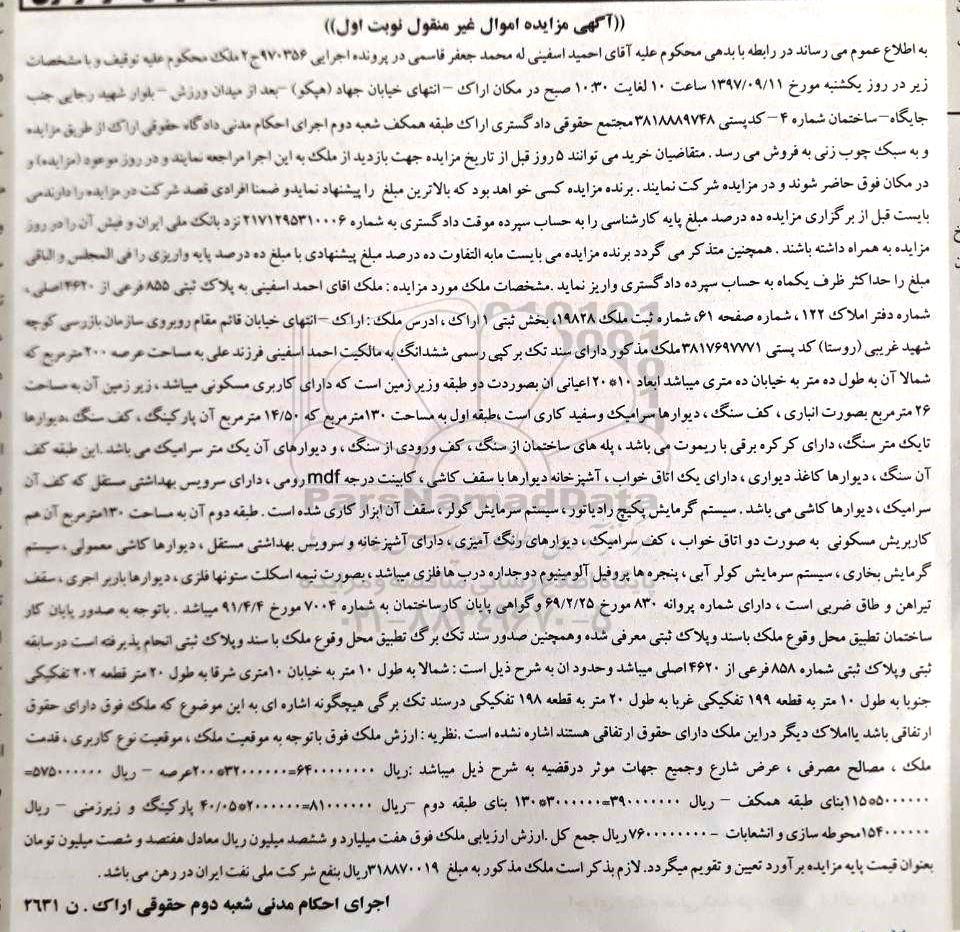 ((آگهی مزایده اموال غیر منقول نوبت اول))
به اطلاع عموم می رساند در رابطه با بدهی محکوم علیه آقای احمید اسفینی له محمد جعفر قاسمی در پرونده اجرایی ۹۷۰۳۵۶ج۲ ملک محکوم علیه توقیف و با مشخصات
زیر در روز یکشنبه مورخ ۱۳۹۷/۰۹/۱۱ ساعت ۱۰ لغایت ۱۰:۳۰ صبح در مکان اراک – انتهای خیابان جهاد (هپکو) –بعد از میدان ورزش – بلوار شهید رجایی جنب
جایگاه–ساختمان شماره ۴ – کدپستی ۳۸۱۸۸۸۹۷۴۸ مجتمع حقوقی دادگستری اراک طبقه همکف شعبه دوم اجرای احکام مدنی دادگاه حقوقی اراک از طریق مزایده
و به سبک چوب زنی به فروش می رسد . متقاضیان خرید می توانند ۵ روز قبل از تاریخ مزایده جهت بازدید از ملک به این اجرا مراجعه نمایند و در روز موعود (مزایده) و
در مکان فوق حاضر شوند و در مزایده شرکت نمایند . برنده مزایده کسی خو اهد بود که بالاترین مبلغ را پیشنهاد نمایدو ضمنا افرادی قصد شرکت در مزایده را دارندمی
بایست قبل از برگزاری مزایده ده درصد مبلغ پایه کارشناسی را به حساب سپرده موقت دادگستری به شماره ۲۱۷۱۲۹۵۳۱۰۰۰۶ نزد بانک ملی ایران و فیش آن را در روز
مزایده به همراه داشته باشند . همچنین متذکر می گردد برنده مزایده می بایست مابه التفاوت ده درصد مبلغ پیشنهادی با مبلغ ده درصد پایه واریزی را فی المجلس و الباقی
مبلغ را حداکثر ظرف یکماه به حساب سپرده دادگستری واریز نماید .مشخصات ملک مورد مزایده : ملک اقای احمد اسفینی به پلاک ثبتی ۸۵۵ فرعی از ۴۶۲۰ اصلی ،
شماره دفتر املاک ۱۲۲ ، شماره صفحه ۶۱، شماره ثبت ملک ۱۹۸۲۸، بخش ثبتی ۱ اراک ، ادرس ملک : اراک –انتهای خیابان قائم مقام روبروی سازمان بازرسی کوچه
شهید غریبی (روستا) کد پستی ۳۸۱۷۶۹۷۷۷۱ملک مذکور دارای سند تک برکپی رسمی ششدانگ به مالکیت احمد اسفینی فرزند علی به مساحت عرصه ۲۰۰ مترمربع که
شمالا آن به طول ده متر به خیابان ده متری میباشد ابعاد ۱۰*۲۰ اعیانی ان بصوردت دو طبقه وزیر زمین است که دارای کاربری مسکونی میباشد ، زیر زمین آن به مساحت
۲۶ مترمربع بصورت انباری ، کف سنگ ، دیوارها سرامیک وسفید کاری است ،طبقه اول به مساحت ۱۳۰مترمربع که ۱۴/۵۰ مترمربع آن پارکینگ ، کف سنگ ،دیوارها
تایک متر سنگ، دارای کرکره برقی با ریموت می باشد ، پله های ساختمان از سنگ ، کف ورودی از سنگ ، و دیوارهای آن یک متر سرامیک می باشد .این طبقه کف
آن سنگ ، دیوارها کاغذ دیواری ، دارای یک اتاق خواب ، آشپزخانه دیوارها با سقف کاشی ، کابینت درجه mdf رومی ، دارای سرویس بهداشتی مستقل که کف آن
سرامیک ، دیوارها کاشی می باشد . سیستم گرمایش پکیج رادیاتور ، سیستم سرمایش کولر، سقف آن ابزار کاری شده است . طبقه دوم آن به مساحت ۱۳۰مترمربع آن هم
کاربریش مسکونی به صورت دو اتاق خواب ، کف سرامیک ، دیوارهای رنگ آمیزی ، دارای آشپزخانه و سرویس بهداشتی مستقل ، دیوارها کاشی معمولی ، سیستم
گرمایش بخاری ، سیستم سرمایش کولر آبی ، پنجره ها پروفیل آلومینیوم دوجداره درب ها فلزی میباشد ، بصورت نیمه اسکلت ستونها فلزی ، دیوارها باربر اجری ، سقف
تیراهن و طاق ضربی است ، دارای شماره پروانه ۸۳۰ مورخ ۶۹/۲/۲۵ وگواهی پایان کارساختمان به شماره ۷۰۰۴ مورخ ۹۱/۴/۴ میباشد . باتوجه به صدور پایان کار
ساختمان تطبیق محل وقوع ملک باسند وپلاک ثبتی معرفی شده وهمچنین صدور سند تک برگ تطبیق محل وقوع ملک با سند وپلاک ثبتی انجام پذیرفته است درسابقه
ثبتی وپلاک ثبتی شماره ۸۵۸ فرعی از ۴۶۲۰ اصلی میباشد وحدود ان به شرح ذیل است : شمالا به طول ۱۰ متر به خیابان ۱۰متری شرقا به طول ۲۰ متر قطعه ۲۰۲ تفکیکی
جنوبا به طول ۱۰ متر به قطعه ۱۹۹ تفکیکی غربا به طول ۲۰ متر به قطعه ۱۹۸ تفکیکی درسند تک برگی هیچگونه اشاره ای به این موضوع که ملک فوق دارای حقوق
ارتفاقی باشد یااملاک دیگر دراین ملک دارای حقوق ارتفاقی هستند اشاره نشده است .نظریه : ارزش ملک فوق باتوجه به موقعیت ملک ، موقعیت نوع کاربری ، قدمت
ملک ، مصالح مصرفی ، عرض شارع وجمیع جهات موثر درقضیه به شرح ذیل میباشد :ریال ۶۴۰۰۰۰۰۰۰۰=۳۲۰۰۰۰۰۰*۲۰۰عرصه – ریال ۵۷۵۰۰۰۰۰۰=
۵۰۰۰۰۰۰*۱۱۵بنای طبقه همکف – ریال ۳۹۰۰۰۰۰۰۰=۳۰۰۰۰۰۰*۱۳۰ بنای طبقه دوم –ریال ۸۱۰۰۰۰۰۰=۲۰۰۰۰۰۰*۴۰/۰۵ پارکینگ و زیرزمنی – ریال
۱۵۴۰۰۰۰۰۰محوطه سازی و انشعابات –۷۶۰۰۰۰۰۰۰۰ریال جمع کل .ارزش ارزیابی ملک فوق هفت میلیارد و ششصد میلیون ریال معادل هفتصد و شصت میلیون تومان
بعنوان قیمت پایه مزایده برآورد تعیین و تقویم میگردد. لازم بذکر است ملک مذکور به مبلغ ۳۱۸۸۷۰۰۱۹ریال بنفع شرکت ملی نفت ایران در رهن می باشد .
اجرای احکام مدنی شعبه دوم حقوقی اراک . ن ۲۶۳۱
ParsNamadData
۰۲۱-۸۸۳۴۹۶۷۰-۵